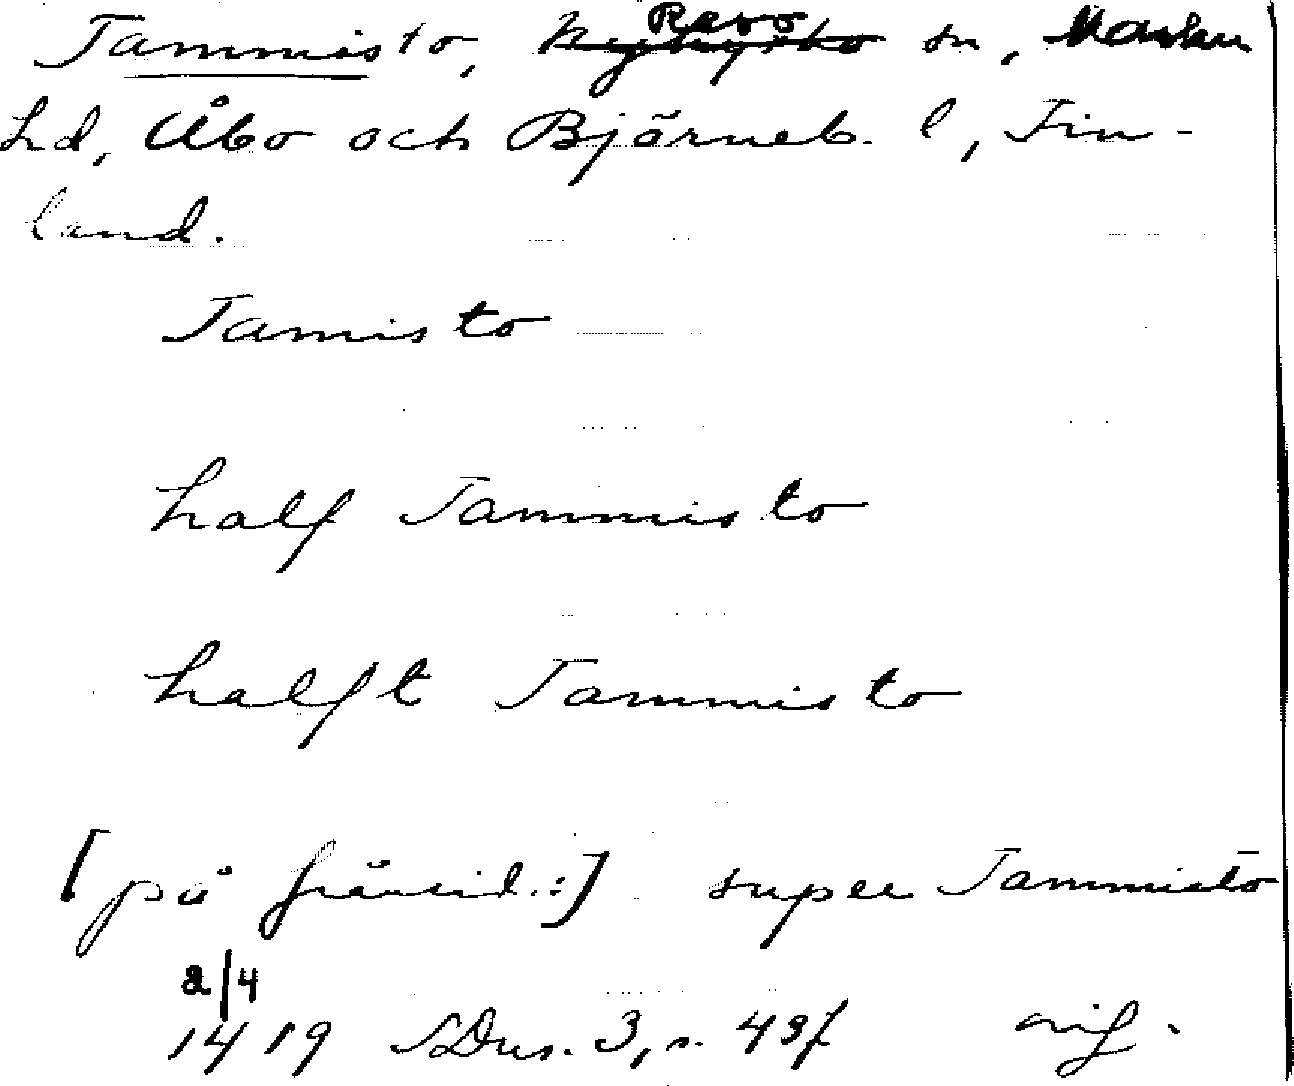 Tammisto, Revo sn, Masku
hd, Åbo och Björneb. l, Fin-
land.
Tamisto
half Tammisto
halft Tammisto
[på frånsid.:] super Tammisto
2/4
1419 SDns. 3, s. 43f orig.